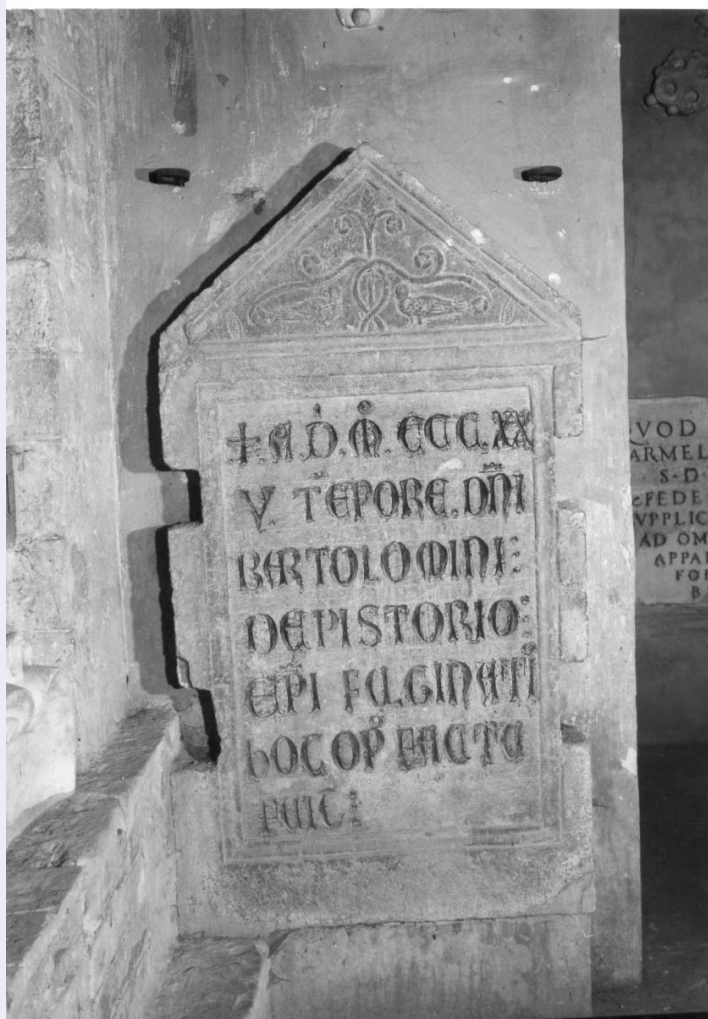 + A. D. M. CCCC. XX
V. TEPORE. DNI
BERTOLOMINI:
DE PISTORIO:
EPI FULGINATI
hOC OP FACTU
FUIT:
QVOD
ARMEL
S·D·
FEDE
VPPLIC
AD OM
APPA
FO
B